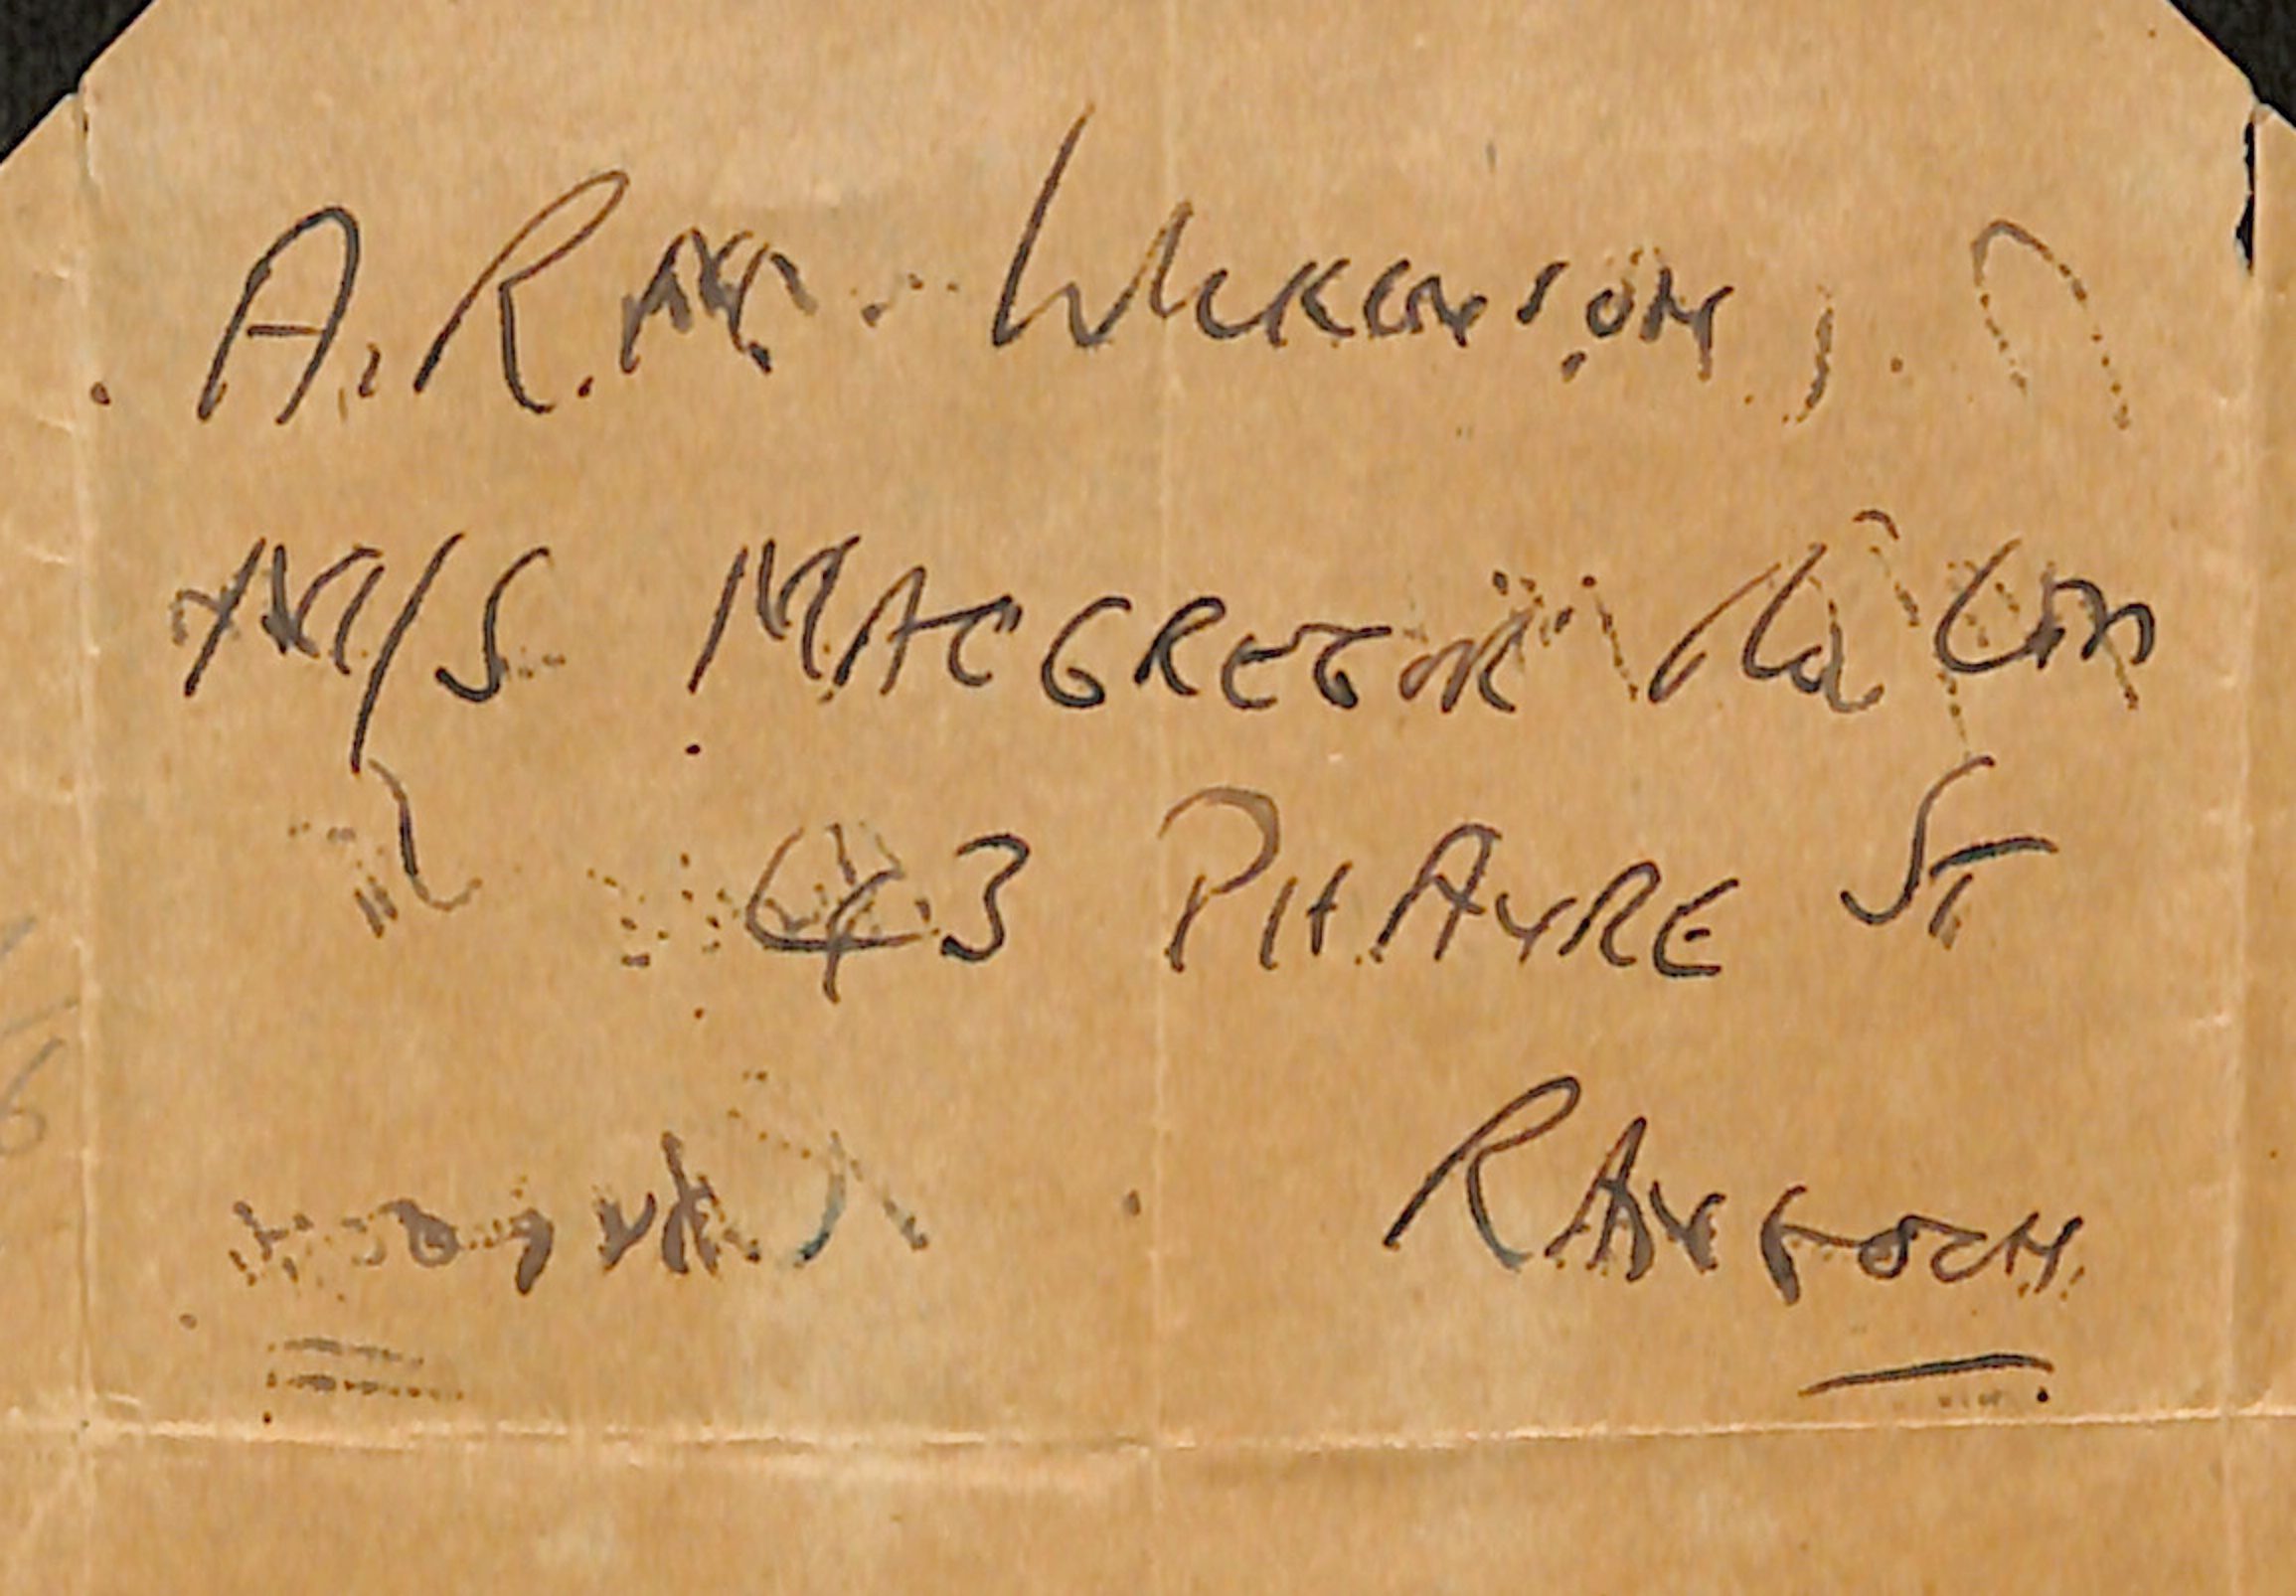 A. R. M. Wilkinson,
M/S MACGREGOR & Co Ltd
43 PHAYRE ST
RANGOON